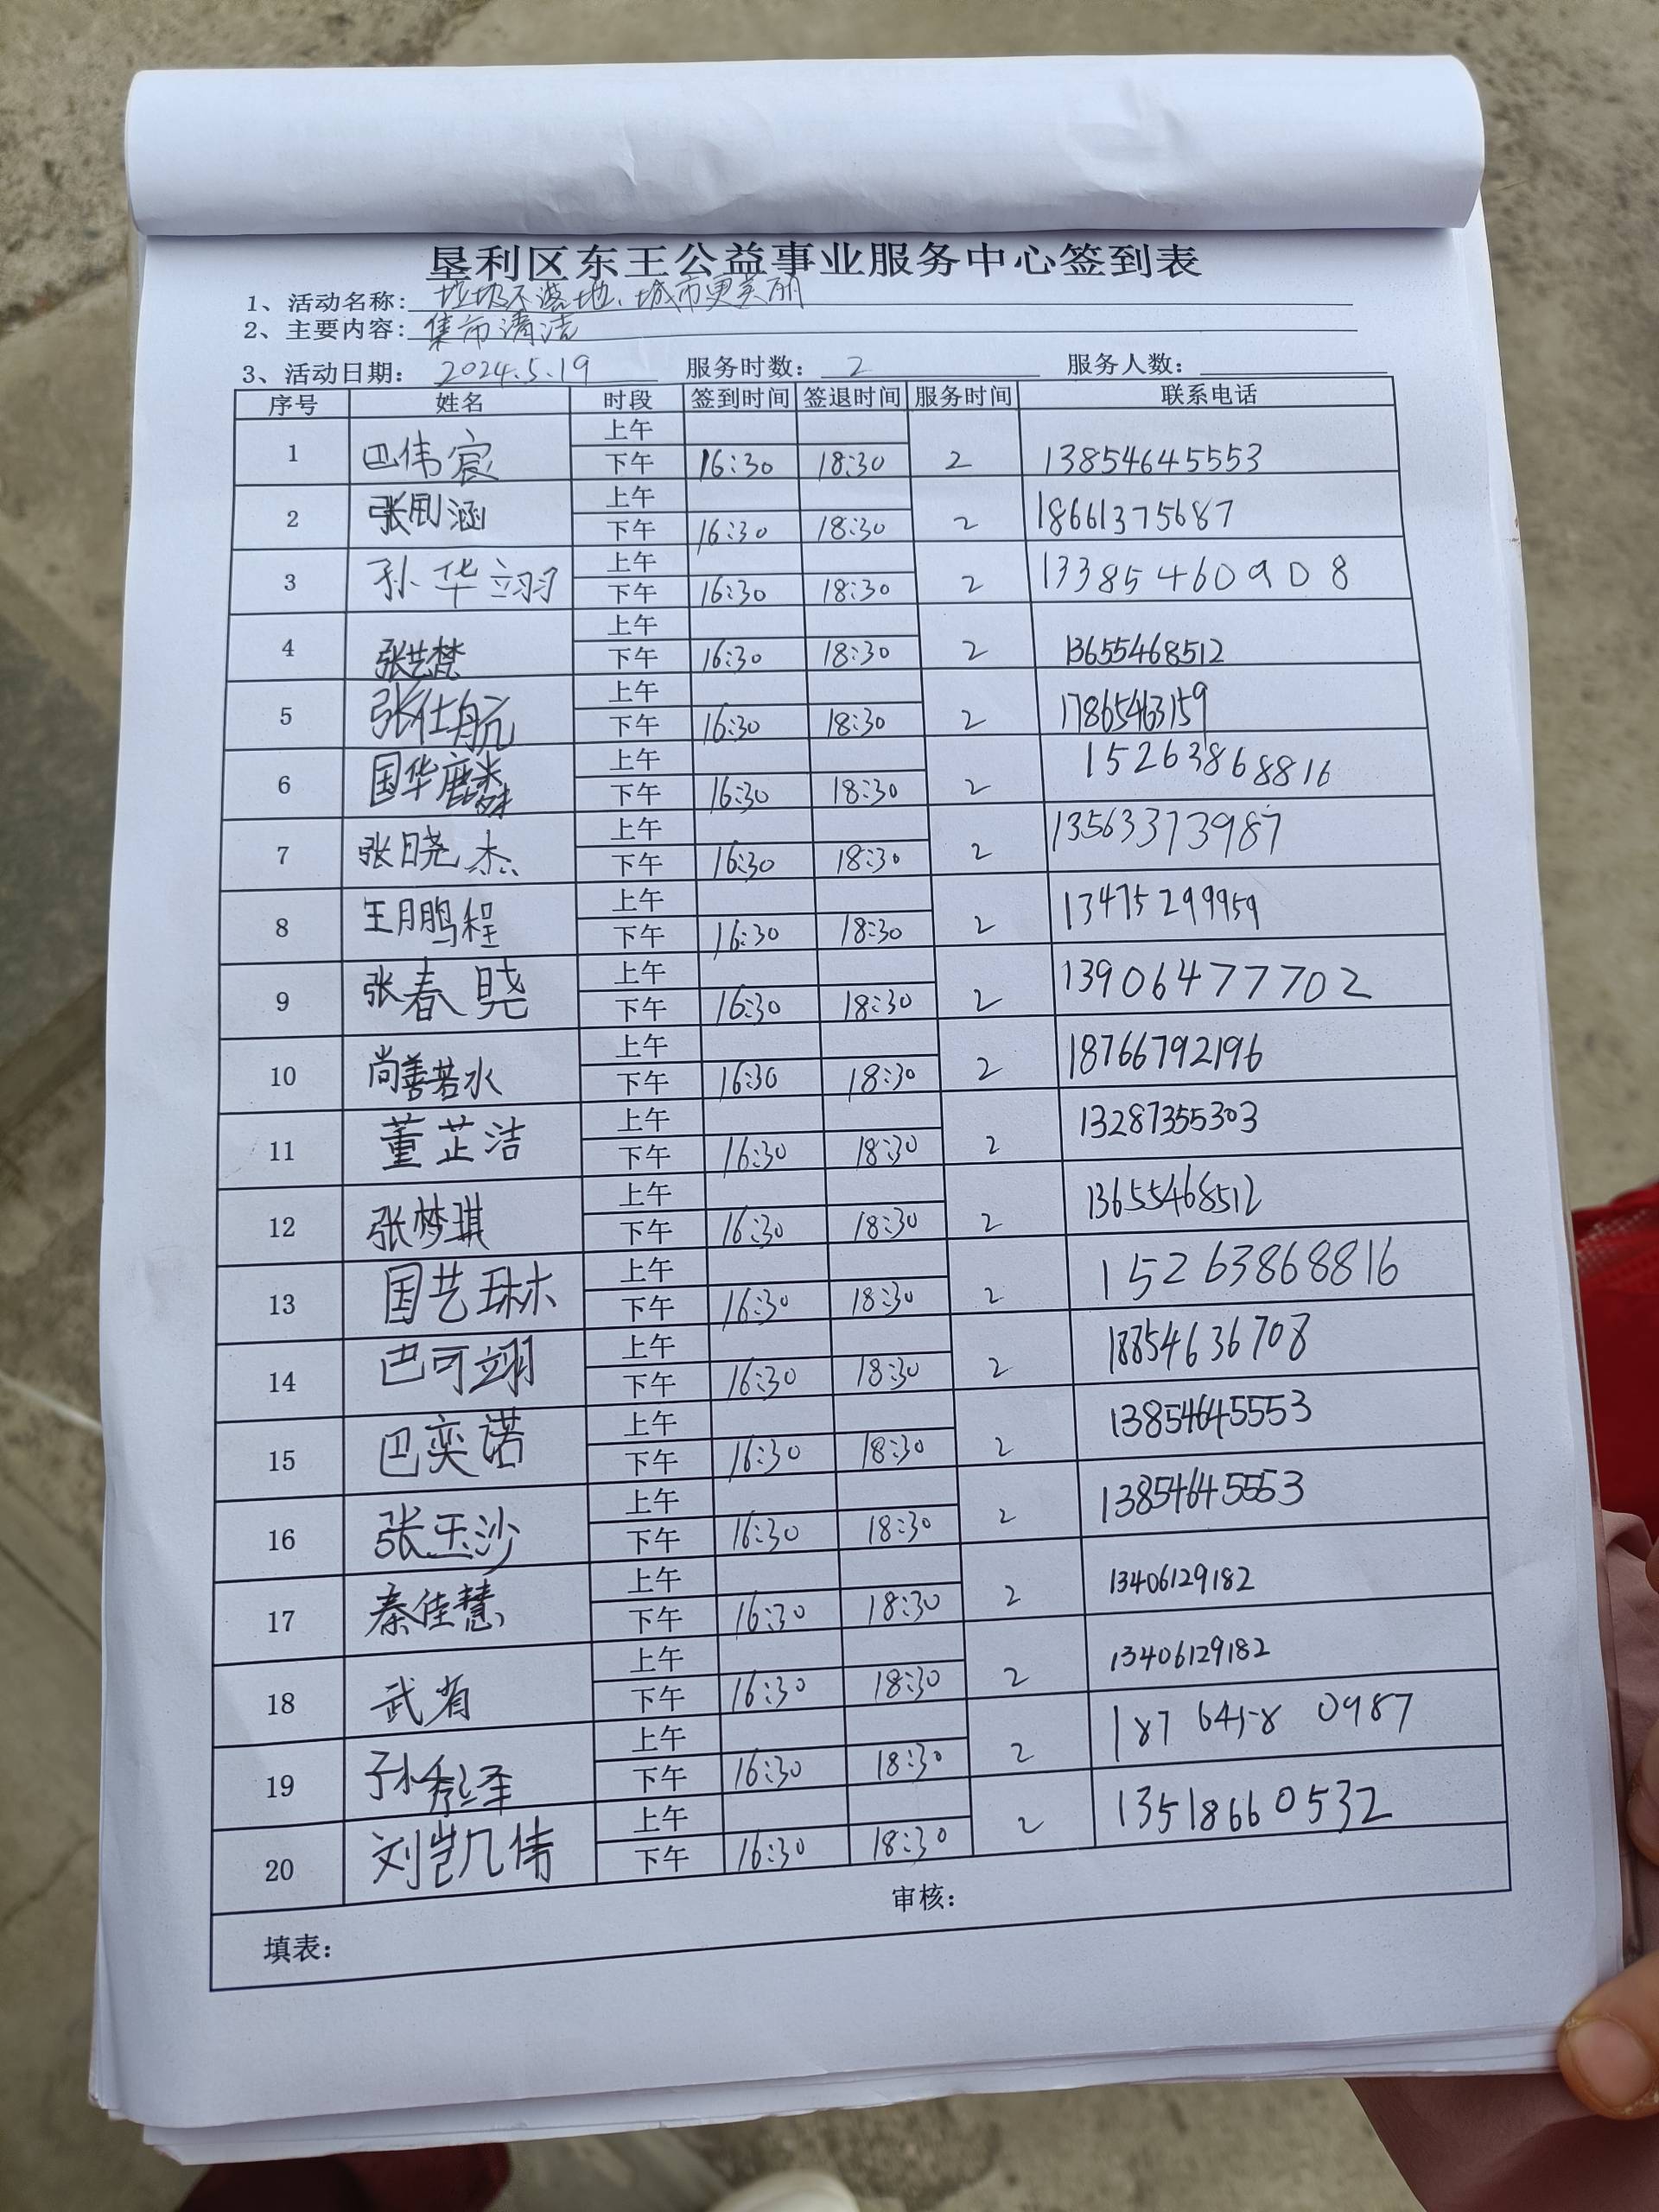 垦利区东王公益事业服务中心签到表
1、活动名称: 垃圾不落地、城市更美丽
2、主要内容: 集市清洁
3、活动日期: 2024.5.19 服务时数: 2 服务人数:
序号 姓名 时段 签到时间 签退时间 服务时间 联系电话
上午
1 巴伟宸 下午 16:30 18:30 2 13854645553
上午
2 张涵 下午 16:30 18:30 2 18661375687
上午
3 孙华翊 下午 16:30 18:30 2 13385460908
上午
4 张艺梵 下午 16:30 18:30 2 13655468512
上午
5 张仕航 下午 16:30 18:30 2 17865463159
上午
6 国华麟 下午 16:30 18:30 2 15263868816
上午
7 张晓杰 下午 16:30 18:30 2 13563373987
上午
8 王鹏程 下午 16:30 18:30 2 13475299959
上午
9 张春晓 下午 16:30 18:30 2 13906477702
上午
10 尚善若水 下午 16:30 18:30 2 18766792196
上午
11 董芷洁 下午 16:30 18:30 2 13287355303
上午
12 张梦琪 下午 16:30 18:30 2 13655468512
上午
13 国艺琳 下午 16:30 18:30 2 15263868816
上午
14 巴可翊 下午 16:30 18:30 2 18854636708
上午
15 巴奕诺 下午 16:30 18:30 2 13854645553
上午
16 张玉沙 下午 16:30 18:30 2 13854645553
上午
17 秦佳慧 下午 16:30 18:30 2 13406129182
上午
18 武 下午 16:30 18:30 2 13406129182
上午
19 孙泽 下午 16:30 18:30 2 18764580987
上午
20 刘凯伟 下午 16:30 18:30 2 13518660532
填表: 审核: